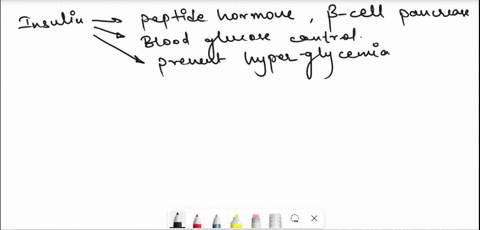 Insulin → peptide hormone, β-cell pancrease
→ Blood glucose control.
→ prevent hyper-glycemia